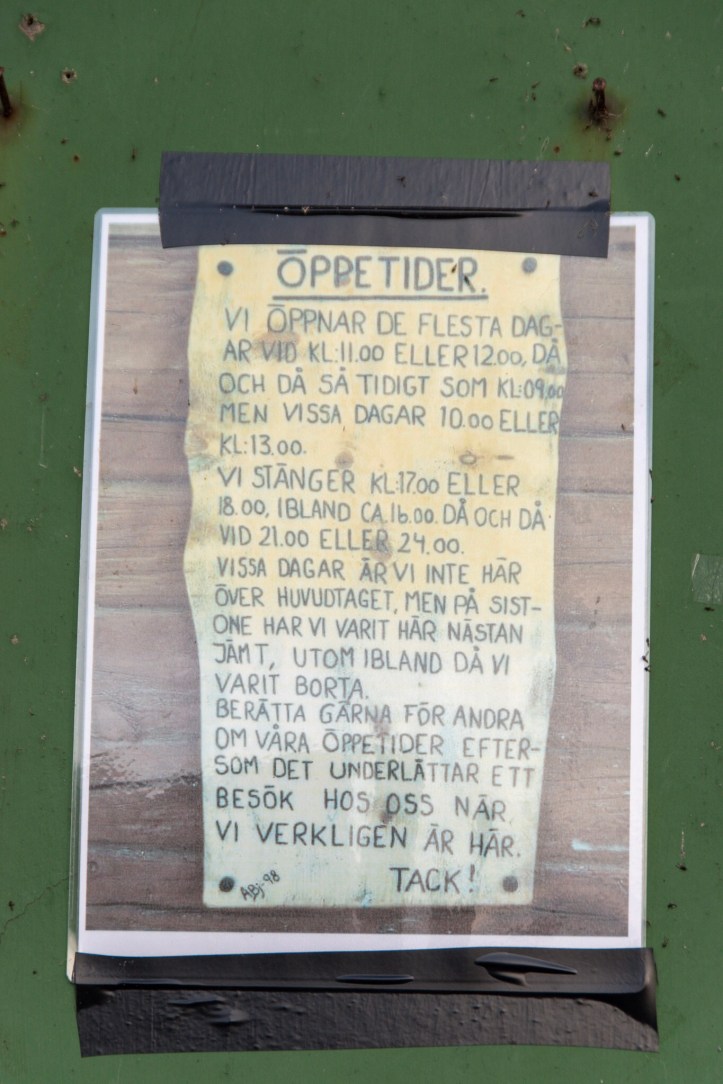 ÖPPETIDER.
VI ÖPPNAR DE FLESTA DAG-
AR VID KL:11.00 ELLER 12.00, DÅ
OCH DÅ SÅ TIDIGT SOM KL:09.00
MEN VISSA DAGAR 10.00 ELLER
KL:13.00.
VI STÄNGER KL:17.00 ELLER
18.00, IBLAND CA.16.00. DÅ OCH DÅ
VID 21.00 ELLER 24.00.
VISSA DAGAR ÄR VI INTE HÄR
ÖVER HUVUDTAGET, MEN PÅ SIST-
ONE HAR VI VARIT HÄR NÄSTAN
JÄMT, UTOM IBLAND DÅ VI
VARIT BORTA.
BERÄTTA GÄRNA FÖR ANDRA
OM VÅRA ÖPPETIDER EFTER-
SOM DET UNDERLÄTTAR ETT
BESÖK HOS OSS NÄR
VI VERKLIGEN ÄR HÄR.
TACK!
ABj-98